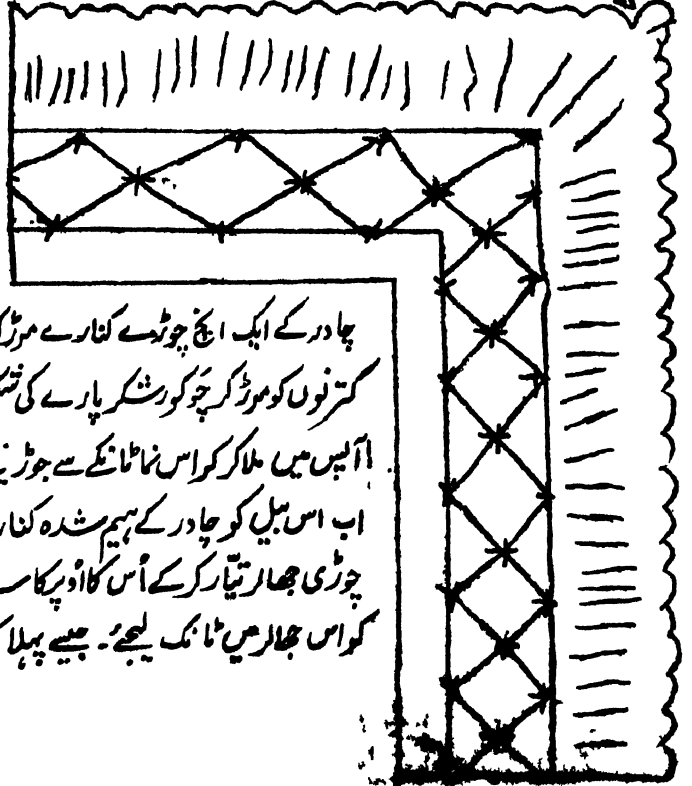 چادر کے ایک انچ چوڑے کنارے موڑ
کترنوں کو موڑ کر چوکور شکر پارے کی
آپس میں ملا کر کراس نما ٹانکے سے جوڑ
اب اس بیل کو چادر کے ہیم شدہ کنار
چوڑی جھالر تیّار کر کے اُس کا اُوپر کا
کو اس جھالر میں ٹانک لیجئے۔ جیسے پہلا